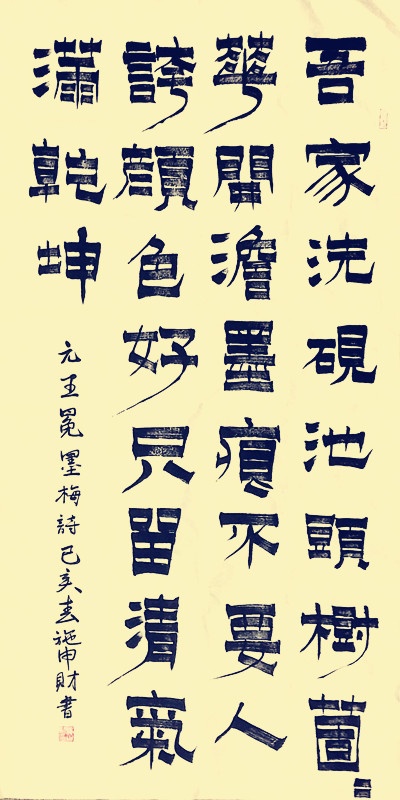 吾家洗硯池頭樹箇〻
華開澹墨痕不要人
誇顏色好只留清氣
滿乾坤
元王冕墨梅詩己亥春施申財書